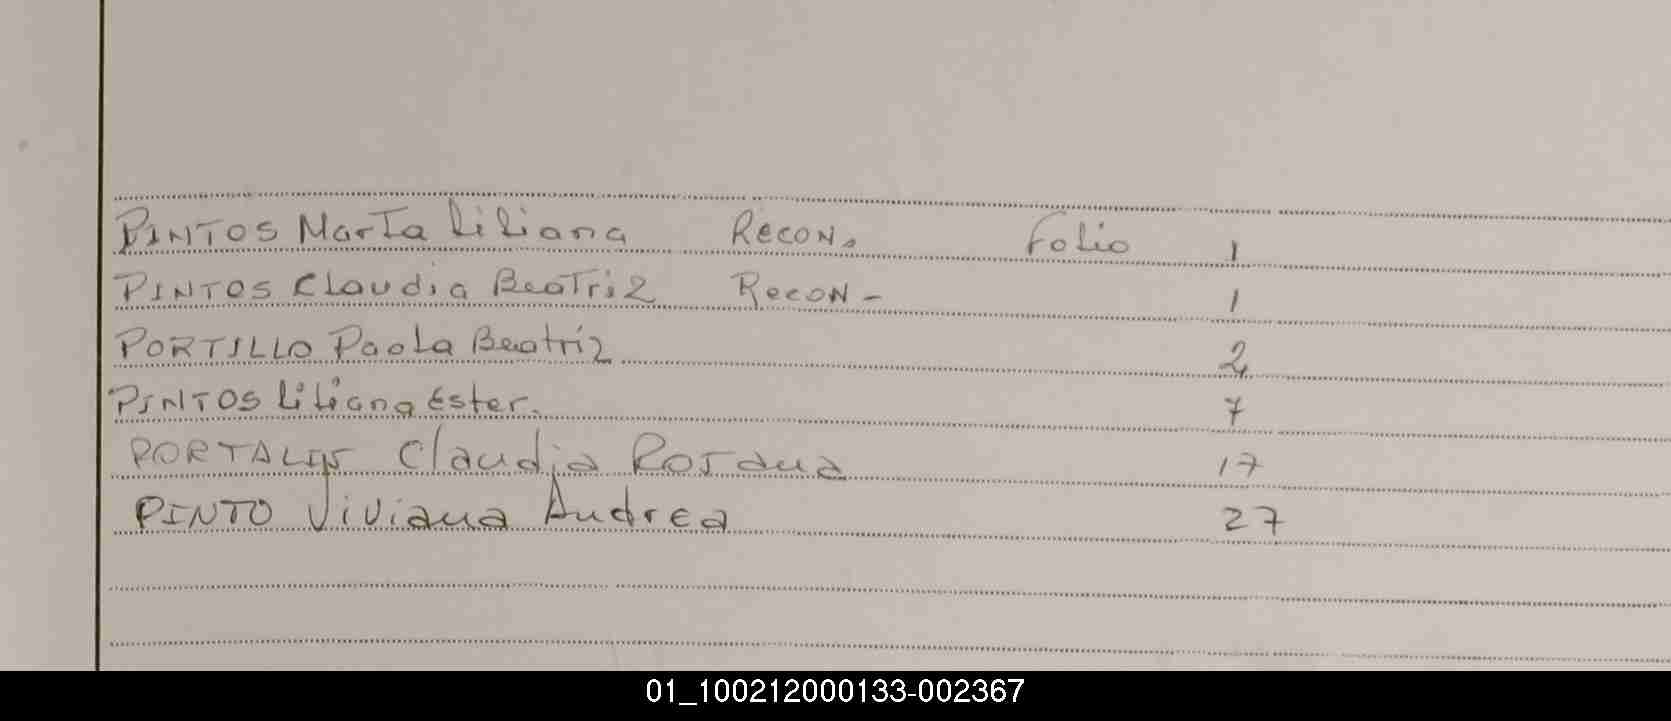 PINTOS Marta Liliana Recon. Folio 1
PINTOS Claudia Beatriz Recon- 1
PORTILLO Paola Beatriz 2
PINTOS Liliana Ester. 7
Claudia Rosana 17
PINTO Viviana Andrea 27
01_100212000133-002367